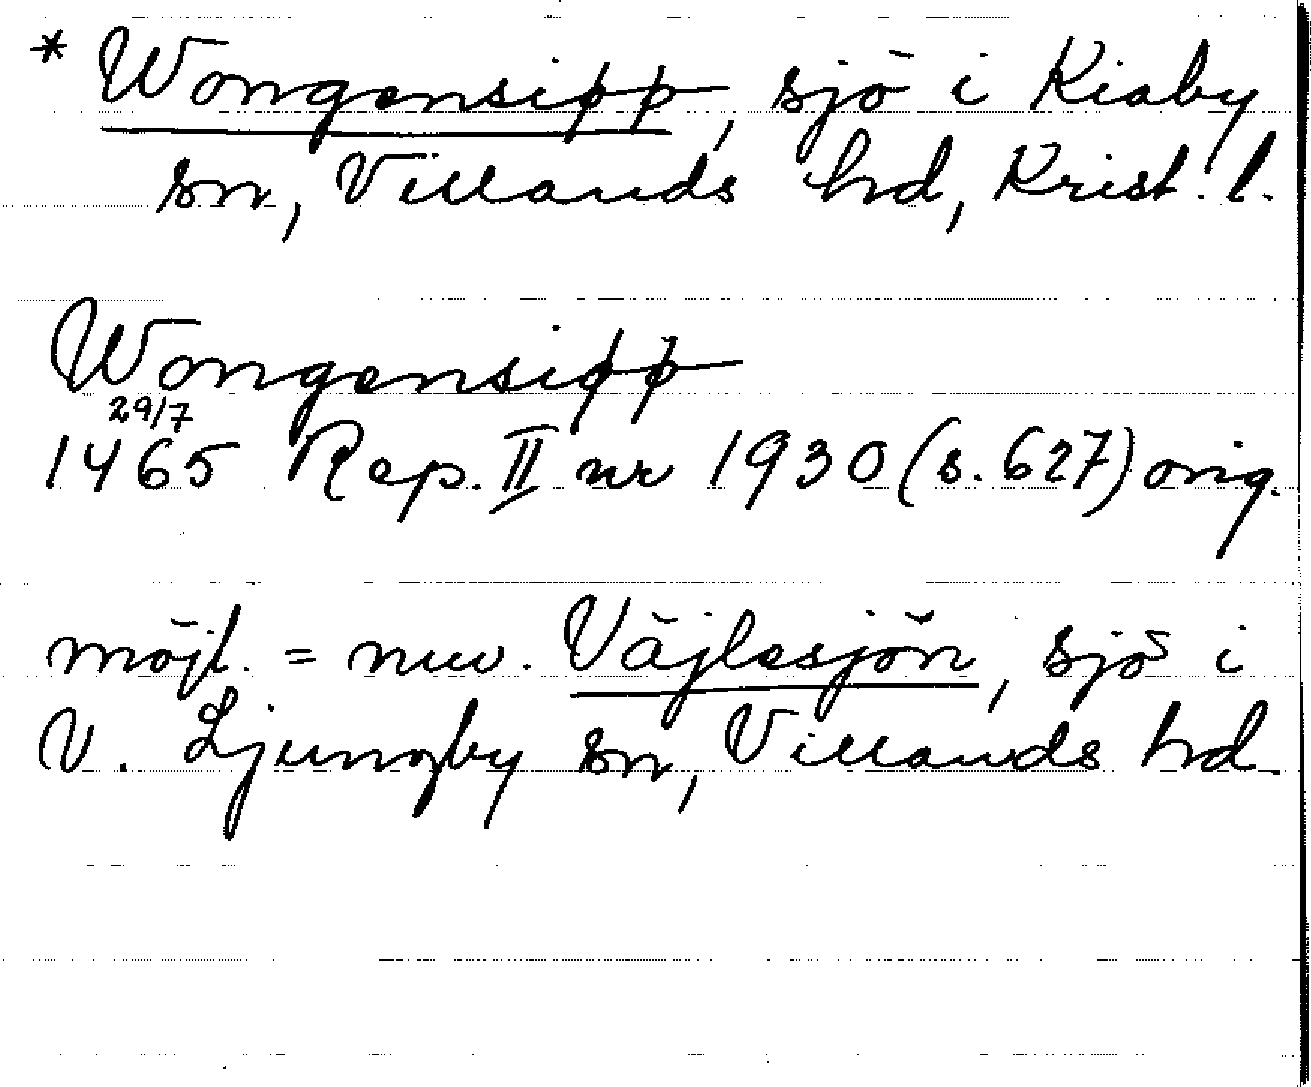 * Wongensiøp, sjö i Kiaby
sn, Villands hd, Krist. l.
Wongensiøp
29/7
1465 Rep. II nr 1930 (s. 627) orig.
möjl. = nuv. Väjlesjön, sjö i
V. Ljungby sn, Villands hd